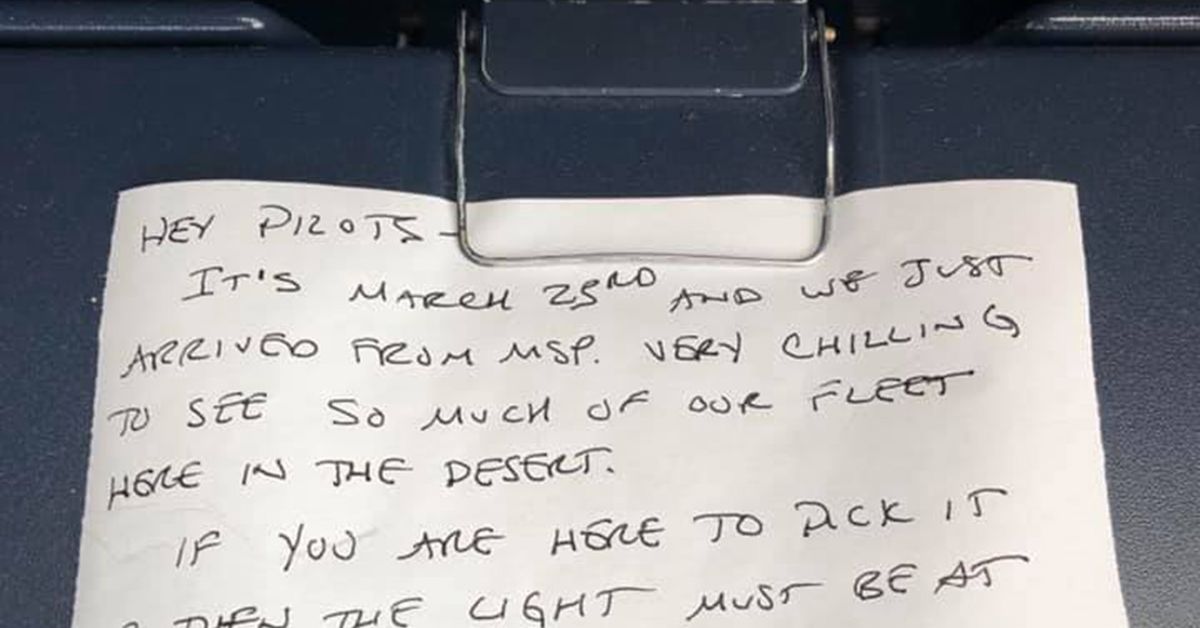 HEY PILOTS-
IT'S MARCH 23RD AND WE JUST
ARRIVED FROM MSP. VERY CHILLING
TO SEE SO MUCH OF OUR FLEET
HERE IN THE DESERT.
IF YOU ARE HERE TO PICK IT
THEN THE LIGHT MUST BE AT